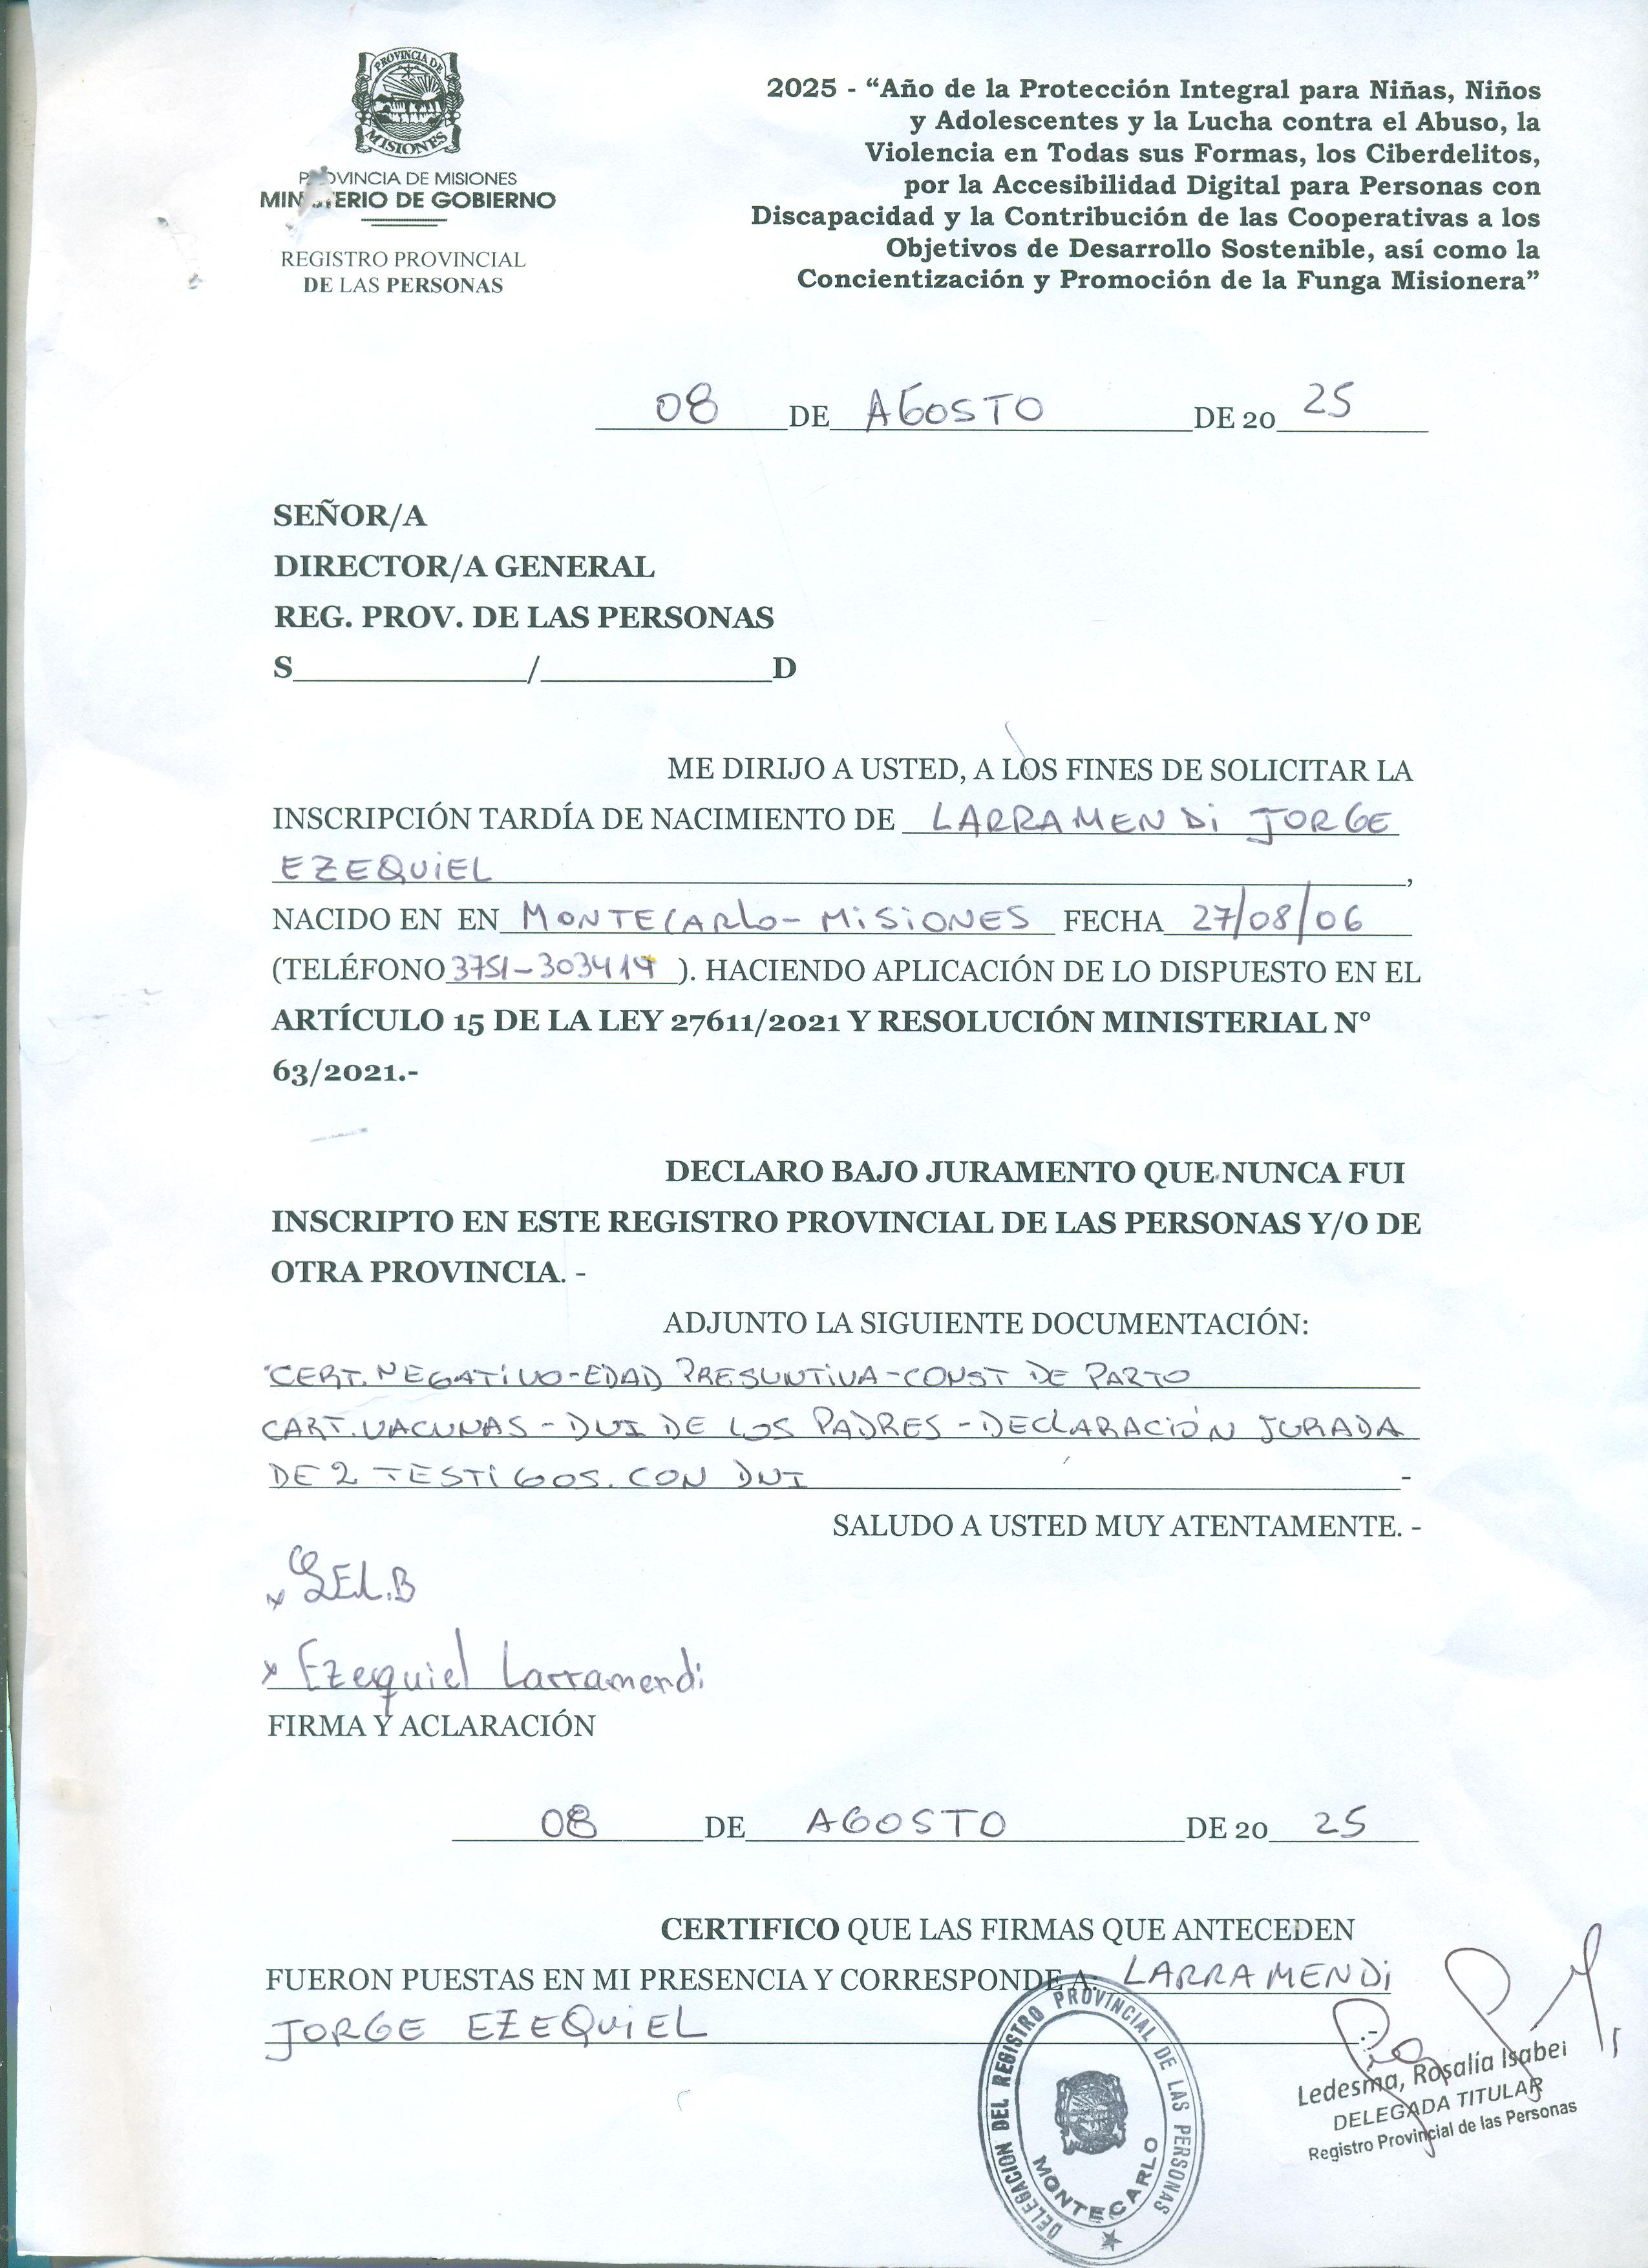 PROVINCIA DE
MISIONES
PROVINCIA DE MISIONES
MINISTERIO DE GOBIERNO
REGISTRO PROVINCIAL
DE LAS PERSONAS
2025 - “Año de la Protección Integral para Niñas, Niños
y Adolescentes y la Lucha contra el Abuso, la
Violencia en Todas sus Formas, los Ciberdelitos,
por la Accesibilidad Digital para Personas con
Discapacidad y la Contribución de las Cooperativas a los
Objetivos de Desarrollo Sostenible, así como la
Concientización y Promoción de la Funga Misionera”
08 DE AGOSTO DE 20 25
SEÑOR/A
DIRECTOR/A GENERAL
REG. PROV. DE LAS PERSONAS
S______________/______________D
ME DIRIJO A USTED, A LOS FINES DE SOLICITAR LA
INSCRIPCIÓN TARDÍA DE NACIMIENTO DE LARRAMENDI JORGE
EZEQUIEL,
NACIDO EN EN MONTECARLO- MISIONES FECHA 27/08/06
(TELÉFONO 3751-303419). HACIENDO APLICACIÓN DE LO DISPUESTO EN EL
ARTÍCULO 15 DE LA LEY 27611/2021 Y RESOLUCIÓN MINISTERIAL N°
63/2021.-
DECLARO BAJO JURAMENTO QUE NUNCA FUI
INSCRIPTO EN ESTE REGISTRO PROVINCIAL DE LAS PERSONAS Y/O DE
OTRA PROVINCIA. -
ADJUNTO LA SIGUIENTE DOCUMENTACIÓN:
CERT. NEGATIVO-EDAD PRESUNTIVA-CONST DE PARTO
CART. VACUNAS - DNI DE LOS PADRES - DECLARACIÓN JURADA
DE 2 TESTIGOS. CON DNI -
SALUDO A USTED MUY ATENTAMENTE. -
x
x Ezequiel Larramendi
FIRMA Y ACLARACIÓN
08 DE AGOSTO DE 20 25
CERTIFICO QUE LAS FIRMAS QUE ANTECEDEN
FUERON PUESTAS EN MI PRESENCIA Y CORRESPONDE A: LARRAMENDI
JORGE EZEQUIEL
DELEGACION DEL REGISTRO PROVINCIAL DE LAS PERSONAS
MONTECARLO
Ledesma, Rosalía Isabel
DELEGADA TITULAR
Registro Provincial de las Personas